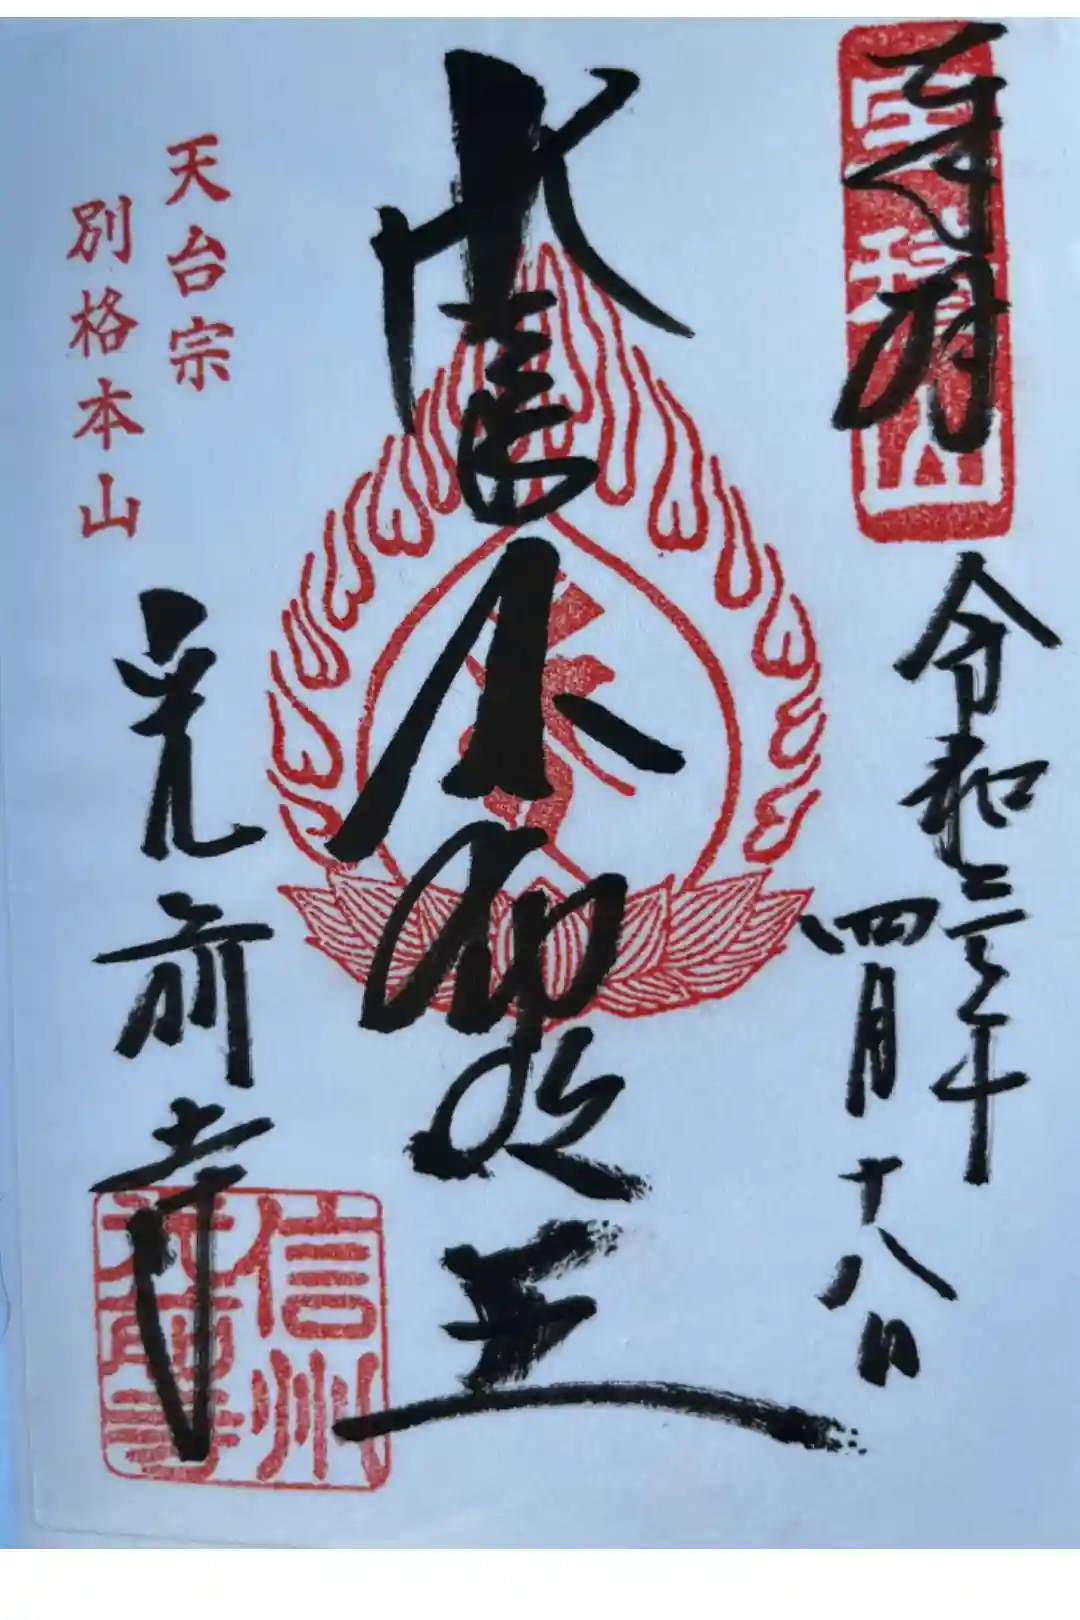 宝積山
令和三年
四月十八日
不動明王
天台宗
別格本山
光前寺
信州
光前寺